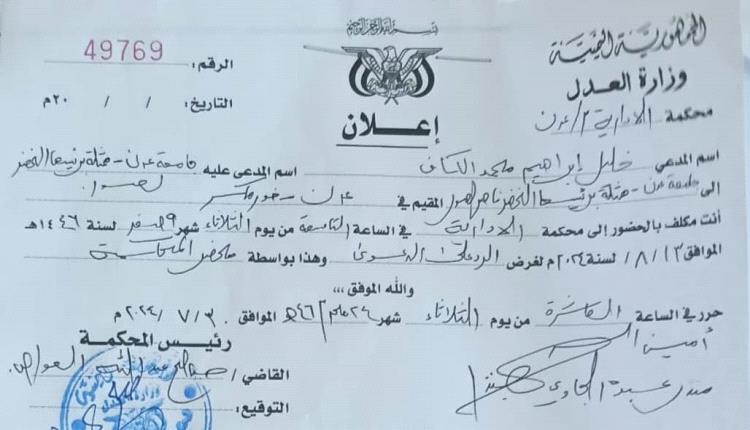 الجمهورية اليمنية
وزارة العدل
محكمة الادارية م/عدن
الرقم: 49769
التاريخ: / / ٢٠م
إعلان
اسم المدعي خليل إبراهيم محمد الكاف اسم المدعى عليه جامعة عدن - ممثلة برئيسها الخضر لصور
إلى جامعة عدن - ممثلة برئيسها الخضر ناصر لصور المقيم في عدن - خورمكسر
أنت مكلف بالحضور إلى محكمة الادارية في الساعة التاسعة من يوم الثلاثاء شهر ٩ صفر لسنة ١٤٤٦هـ
الموافق ١٣ / ٨ / لسنة ٢٠٢٤م لغرض الرد على الدعوى وهذا بواسطة محضر المحكمة
والله الموفق ،،،
حرر في الساعة العاشرة من يوم الثلاثاء شهر ٢٤ محرم / ٤٦هـ الموافق ٣٠ / ٧ / ٢٠٢٤م
رئيس المحكمة
أمين السر
القاضي / صالح
عبده
التوقيع: